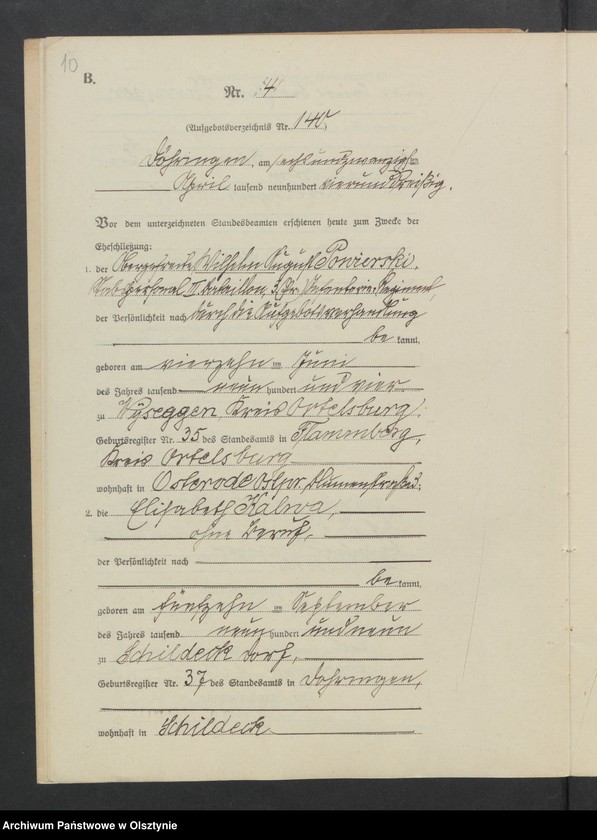 10
B.
Nr. 4
(Aufgebotsverzeichnis Nr. 140)
Döhringen, am sechsundzwanzigsten
April tausend neunhundert vierunddreißig.
Vor dem unterzeichneten Standesbeamten erschienen heute zum Zwecke der
Eheschließung:
1. der Obergefreite Wilhelm August Powierski,
Stabspersonal III. Bataillon, 3. Pr. Infanterie-Regiment,
der Persönlichkeit nach durch die Aufgebotsverhandlung
be kannt,
geboren am vierzehn ten Juni
des Jahres tausend neun hundert und vier
zu Wyseggen, Kreis Ortelsburg,
Geburtsregister Nr. 35 des Standesamts in Flammberg,
Kreis Ortelsburg
wohnhaft in Osterode Ostpr., Blumenstraße 3.
2. die Elisabeth Kalwa,
ohne Beruf,
der Persönlichkeit nach
be kannt,
geboren am fünfzehn ten September
des Jahres tausend neun hundert und neun
zu Schildeck Dorf,
Geburtsregister Nr. 37 des Standesamts in Döhringen,
wohnhaft in Schildeck
Archiwum Państwowe w Olsztynie